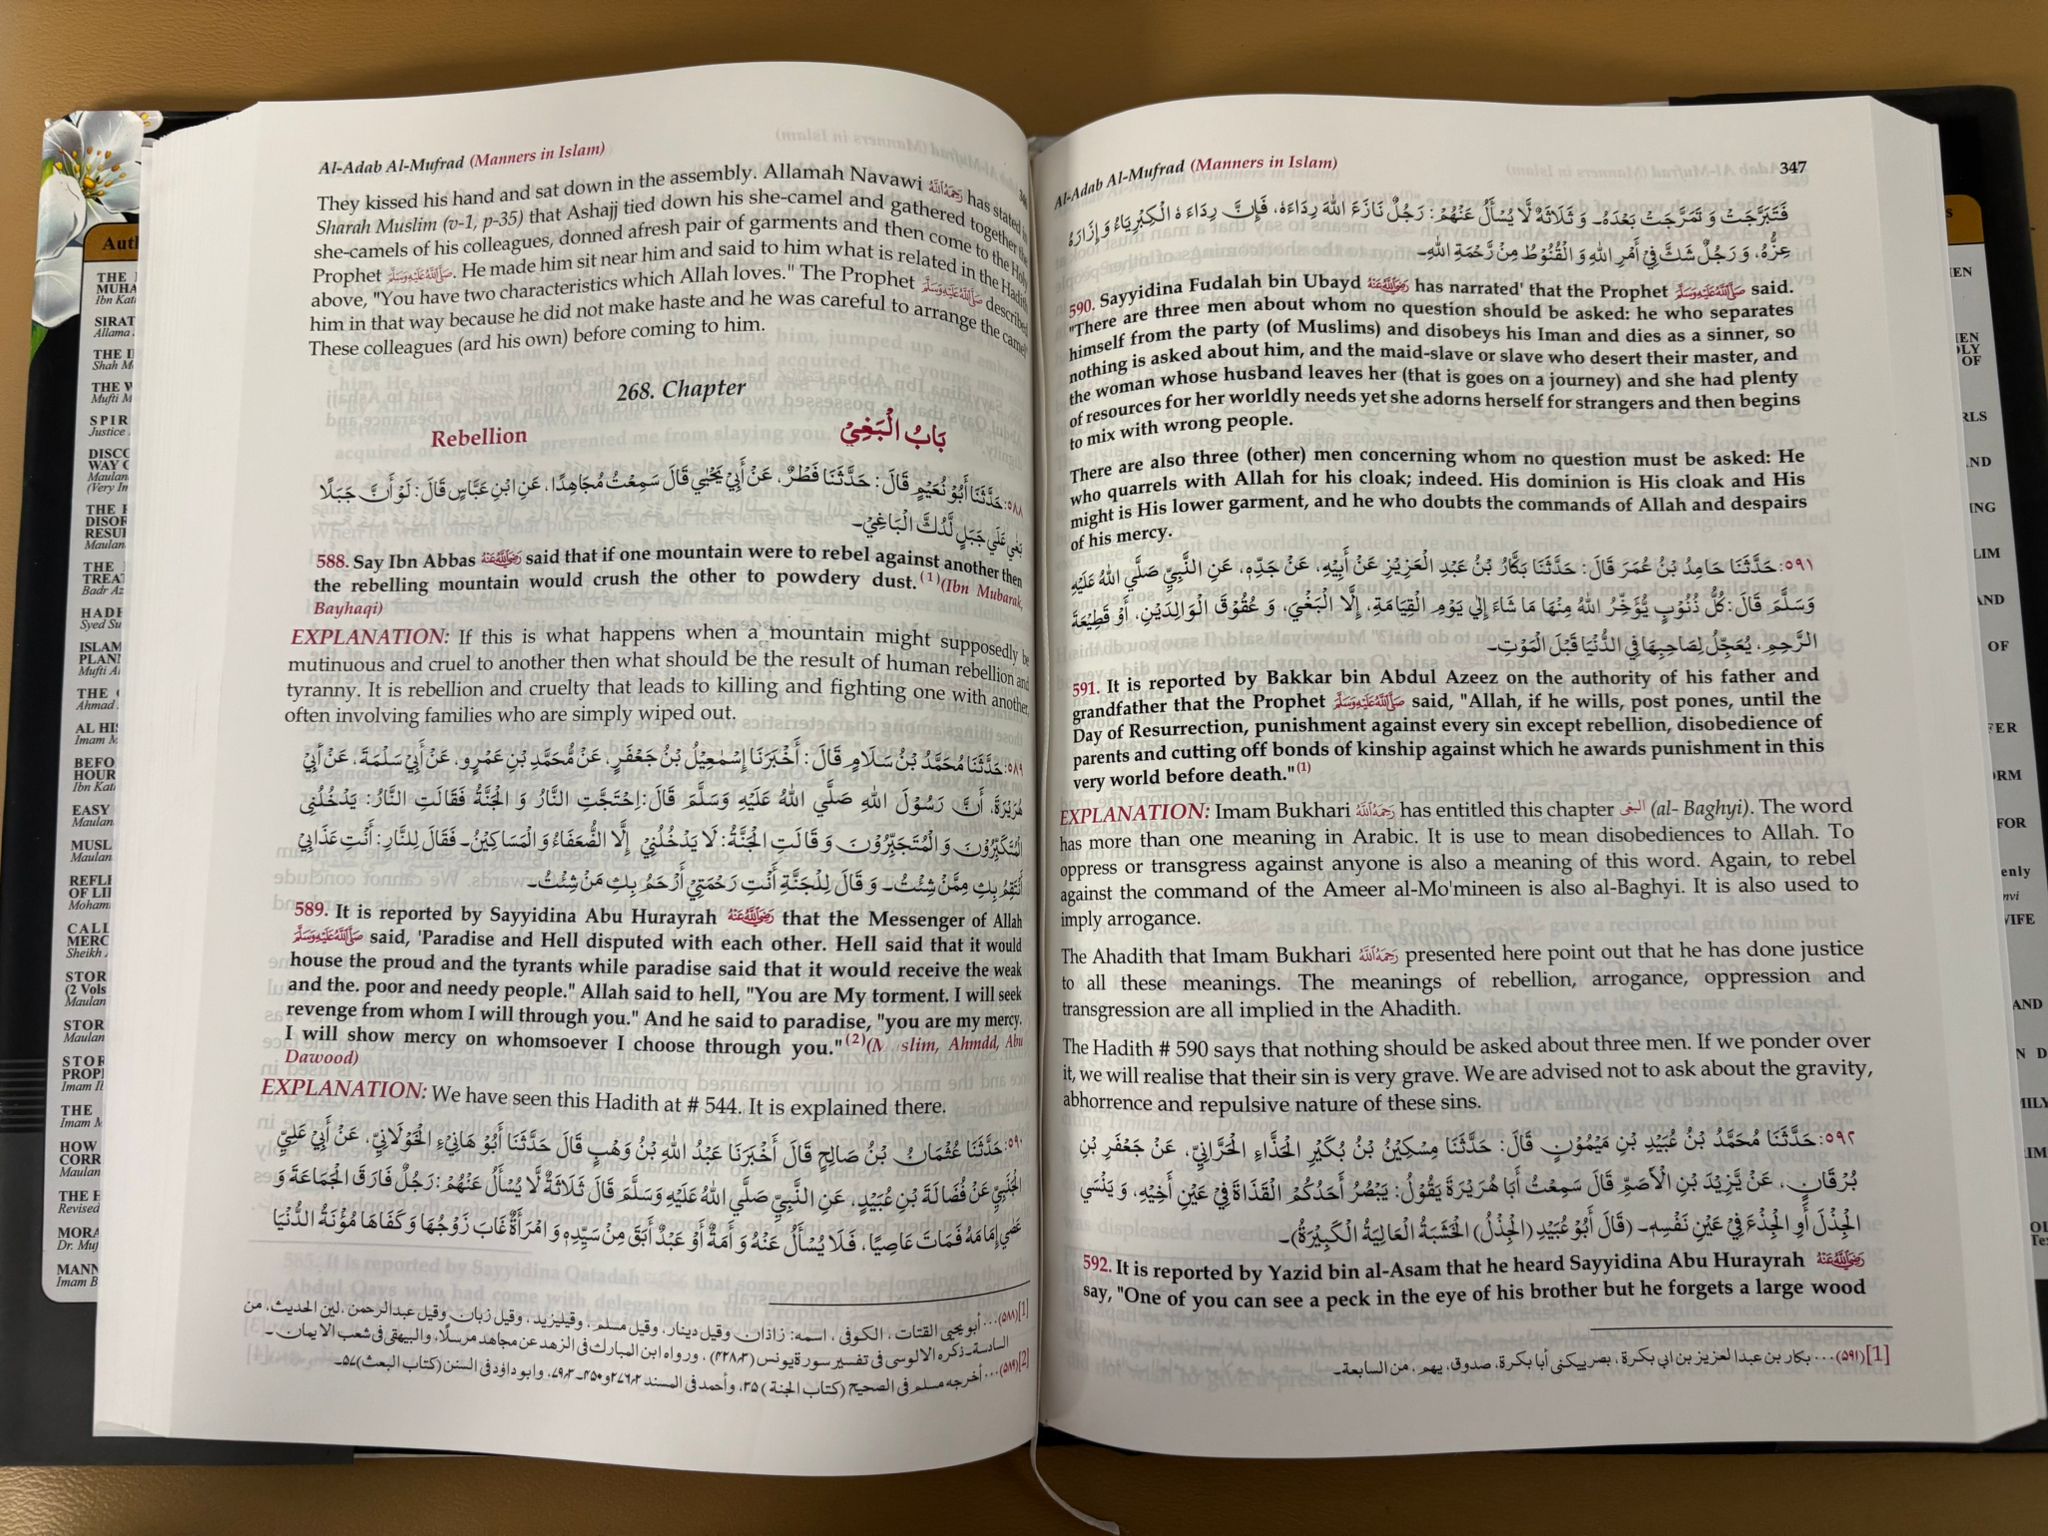 Al-Adab Al-Mufrad (Manners in Islam)
They kissed his hand and sat down in the assembly. Allamah Navawi has stated in
Sharah Muslim (v-1, p-35) that Ashajj tied down his she-camel and gathered together the
she-camels of his colleagues, donned afresh pair of garments and then come to the Holy
Prophet ﷺ. He made him sit near him and said to him what is related in the Hadith
above, "You have two characteristics which Allah loves." The Prophet ﷺ described
him in that way because he did not make haste and he was careful to arrange the camel
These colleagues (ard his own) before coming to him.
268. Chapter
Rebellion بَابُ الْبَغْيِ
٥٨٨: حَدَّثَنَا أَبُوْ نُعَيْمٍ قَالَ: حَدَّثَنَا فَطْرٌ، عَنْ أَبِيْ يَحْيٰي قَالَ سَمِعْتُ مُجَاهِدًا، عَنِ ابْنِ عَبَّاسٍ قَالَ: لَوْ أَنَّ جَبَلًا
بَغٰي عَلٰي جَبَلٍ لَّدُكَّ الْبَاغِيْ۔
588. Say Ibn Abbas said that if one mountain were to rebel against another then
the rebelling mountain would crush the other to powdery dust.(1)(Ibn Mubarak,
Bayhaqi)
EXPLANATION: If this is what happens when a mountain might supposedly be
mutinuous and cruel to another then what should be the result of human rebellion and
tyranny. It is rebellion and cruelty that leads to killing and fighting one with another,
often involving families who are simply wiped out.
٥٨٩: حَدَّثَنَا مُحَمَّدُ بْنُ سَلَامٍ قَالَ: أَخْبَرَنَا إِسْمٰعِيْلُ بْنُ جَعْفَرٍ، عَنْ مُّحَمَّدِ بْنِ عَمْرٍو، عَنْ أَبِيْ سَلْمَةَ، عَنْ أَبِيْ
هُرَيْرَةَ، أَنَّ رَسُوْلَ اللهِ صَلَّي اللهُ عَلَيْهِ وَسَلَّمَ قَالَ: اِحْتَجَّتِ النَّارُ وَ الْجَنَّةُ فَقَالَتِ النَّارُ: يَدْخُلُنِي
الْمُتَكَبِّرُوْنَ وَ الْمُتَجَبِّرُوْنَ وَ قَالَتِ الْجَنَّةُ: لَا يَدْخُلُنِيْ إِلَّا الضُّعَفَاءُ وَ الْمَسَاكِيْنُ۔ فَقَالَ لِلنَّارِ: أَنْتِ عَذَابِيْ
أَنْتَقِمُ بِكِ مِمَّنْ شِئْتُ۔ وَ قَالَ لِلْجَنَّةِ أَنْتِ رَحْمَتِيْ أَرْحَمُ بِكِ مَنْ شِئْتُ۔
589. It is reported by Sayyidina Abu Hurayrah that the Messenger of Allah
ﷺ said, 'Paradise and Hell disputed with each other. Hell said that it would
house the proud and the tyrants while paradise said that it would receive the weak
and the. poor and needy people." Allah said to hell, "You are My torment. I will seek
revenge from whom I will through you." And he said to paradise, "you are my mercy.
I will show mercy on whomsoever I choose through you."(2)(M slim, Ahmdd, Abu
Dawood)
EXPLANATION: We have seen this Hadith at # 544. It is explained there.
٥٩٠: حَدَّثَنَا عُثْمَانُ بْنُ صَالِحٍ قَالَ أَخْبَرَنَا عَبْدُ اللهِ بْنُ وَهْبٍ قَالَ حَدَّثَنَا أَبُوْ هَانِيْءٍ الْخَوْلَانِيُّ، عَنْ أَبِيْ عَلِيٍّ
الْجُنَبِيِّ عَنْ فُضَالَةَ بْنِ عُبَيْدٍ، عَنِ النَّبِيِّ صَلَّي اللهُ عَلَيْهِ وَسَلَّمَ قَالَ ثَلَاثَةٌ لَّا يُسْأَلُ عَنْهُمْ: رَجُلٌ فَارَقَ الْجَمَاعَةَ وَ
عَصٰي إِمَامَهُ فَمَاتَ عَاصِيًا، فَلَا يُسْأَلُ عَنْهُ وَ أَمَةٌ أَوْ عَبْدٌ أَبَقَ مِنْ سَيِّدِهٖ وَ امْرَأَةٌ غَابَ زَوْجُهَا وَ كَفَاهَا مُؤْنَةُ الدُّنْيَا
[1] (۵۸۸)... أبو يحيى القتات، الكوفى، اسمه: زاذان وقيل دينار، وقيل مسلم، وقيل يزيد، وقيل زبان وقيل عبدالرحمن، لين الحديث، من
السادسة۔ ذكره الالوسى فى تفسير سورة يونس (۴۲۸/۳)، ورواه ابن المبارك فى الزهد عن مجاهد مرسلًا، والبيهقى فى شعب الايمان۔
[2] (۵۸۹)... أخرجه مسلم فى الصحيح (كتاب الجنة) ۳۵، وأحمد فى المسند ۲۷۶/۲ و۴۵۰۔ ۷۹/۳، وابو داؤد فى السنن (كتاب البعث) ۵۷۔
Al-Adab Al-Mufrad (Manners in Islam) 347
فَتَبَرَّجَتْ وَ تَمَرَّجَتْ بَعْدَهُ۔ وَ ثَلَاثَةٌ لَّا يُسْأَلُ عَنْهُمْ: رَجُلٌ نَازَعَ اللهَ رِدَاءَهُ، فَإِنَّ رِدَاءَهُ الْكِبْرِيَاءُ وَ إِزَارَهُ
عِزُّهُ، وَ رَجُلٌ شَكَّ فِيْ أَمْرِ اللهِ وَ الْقُنُوْطُ مِنْ رَّحْمَةِ اللهِ۔
590. Sayyidina Fudalah bin Ubayd has narrated' that the Prophet ﷺ said.
"There are three men about whom no question should be asked: he who separates
himself from the party (of Muslims) and disobeys his Iman and dies as a sinner, so
nothing is asked about him, and the maid-slave or slave who desert their master, and
the woman whose husband leaves her (that is goes on a journey) and she had plenty
of resources for her worldly needs yet she adorns herself for strangers and then begins
to mix with wrong people.
There are also three (other) men concerning whom no question must be asked: He
who quarrels with Allah for his cloak; indeed. His dominion is His cloak and His
might is His lower garment, and he who doubts the commands of Allah and despairs
of his mercy.
٥٩١: حَدَّثَنَا حَامِدُ بْنُ عُمَرَ قَالَ: حَدَّثَنَا بَكَّارُ بْنُ عَبْدِ الْعَزِيْزِ عَنْ أَبِيْهِ، عَنْ جَدِّهٖ، عَنِ النَّبِيِّ صَلَّي اللهُ عَلَيْهِ
وَسَلَّمَ قَالَ: كُلُّ ذُنُوْبٍ يُّؤَخِّرُ اللهُ مِنْهَا مَا شَاءَ إِلٰي يَوْمِ الْقِيَامَةِ، إِلَّا الْبَغْيَ، وَ عُقُوْقَ الْوَالِدَيْنِ، أَوْ قَطِيْعَةَ
الرَّحِمِ، يُعَجِّلُ لِصَاحِبِهَا فِي الدُّنْيَا قَبْلَ الْمَوْتِ۔
591. It is reported by Bakkar bin Abdul Azeez on the authority of his father and
grandfather that the Prophet ﷺ said, "Allah, if he wills, post pones, until the
Day of Resurrection, punishment against every sin except rebellion, disobedience of
parents and cutting off bonds of kinship against which he awards punishment in this
very world before death."(1)
EXPLANATION: Imam Bukhari has entitled this chapter البغى (al- Baghyi). The word
has more than one meaning in Arabic. It is use to mean disobediences to Allah. To
oppress or transgress against anyone is also a meaning of this word. Again, to rebel
against the command of the Ameer al-Mo'mineen is also al-Baghyi. It is also used to
imply arrogance.
The Ahadith that Imam Bukhari presented here point out that he has done justice
to all these meanings. The meanings of rebellion, arrogance, oppression and
transgression are all implied in the Ahadith.
The Hadith # 590 says that nothing should be asked about three men. If we ponder over
it, we will realise that their sin is very grave. We are advised not to ask about the gravity,
abhorrence and repulsive nature of these sins.
٥٩٢: حَدَّثَنَا مُحَمَّدُ بْنُ عُبَيْدِ بْنِ مَيْمُوْنٍ قَالَ: حَدَّثَنَا مِسْكِيْنُ بْنُ بُكَيْرٍ الْحَذَّاءِ الْحَرَّانِيِّ، عَنْ جَعْفَرِ بْنِ
بُرْقَانٍ، عَنْ يَّزِيْدَ بْنِ الْأَصَمِّ قَالَ سَمِعْتُ أَبَا هُرَيْرَةَ يَقُوْلُ: يَبْصُرُ أَحَدُكُمُ الْقَذَاةَ فِيْ عَيْنِ أَخِيْهِ، وَ يَنْسَي
الْجِذْلَ أَوِ الْجِذْعَ فِيْ عَيْنِ نَفْسِهٖ۔ (قَالَ أَبُوْ عُبَيْدٍ (الْجِذْلُ) الْخَشَبَةُ الْعَالِيَةُ الْكَبِيْرَةُ)۔
592. It is reported by Yazid bin al-Asam that he heard Sayyidina Abu Hurayrah
say, "One of you can see a peck in the eye of his brother but he forgets a large wood
[1] (۵۹۱)... بكار بن عبدالعزيز بن ابى بكرة، بصرى يكنى أبا بكرة، صدوق، يهم، من السابعة۔